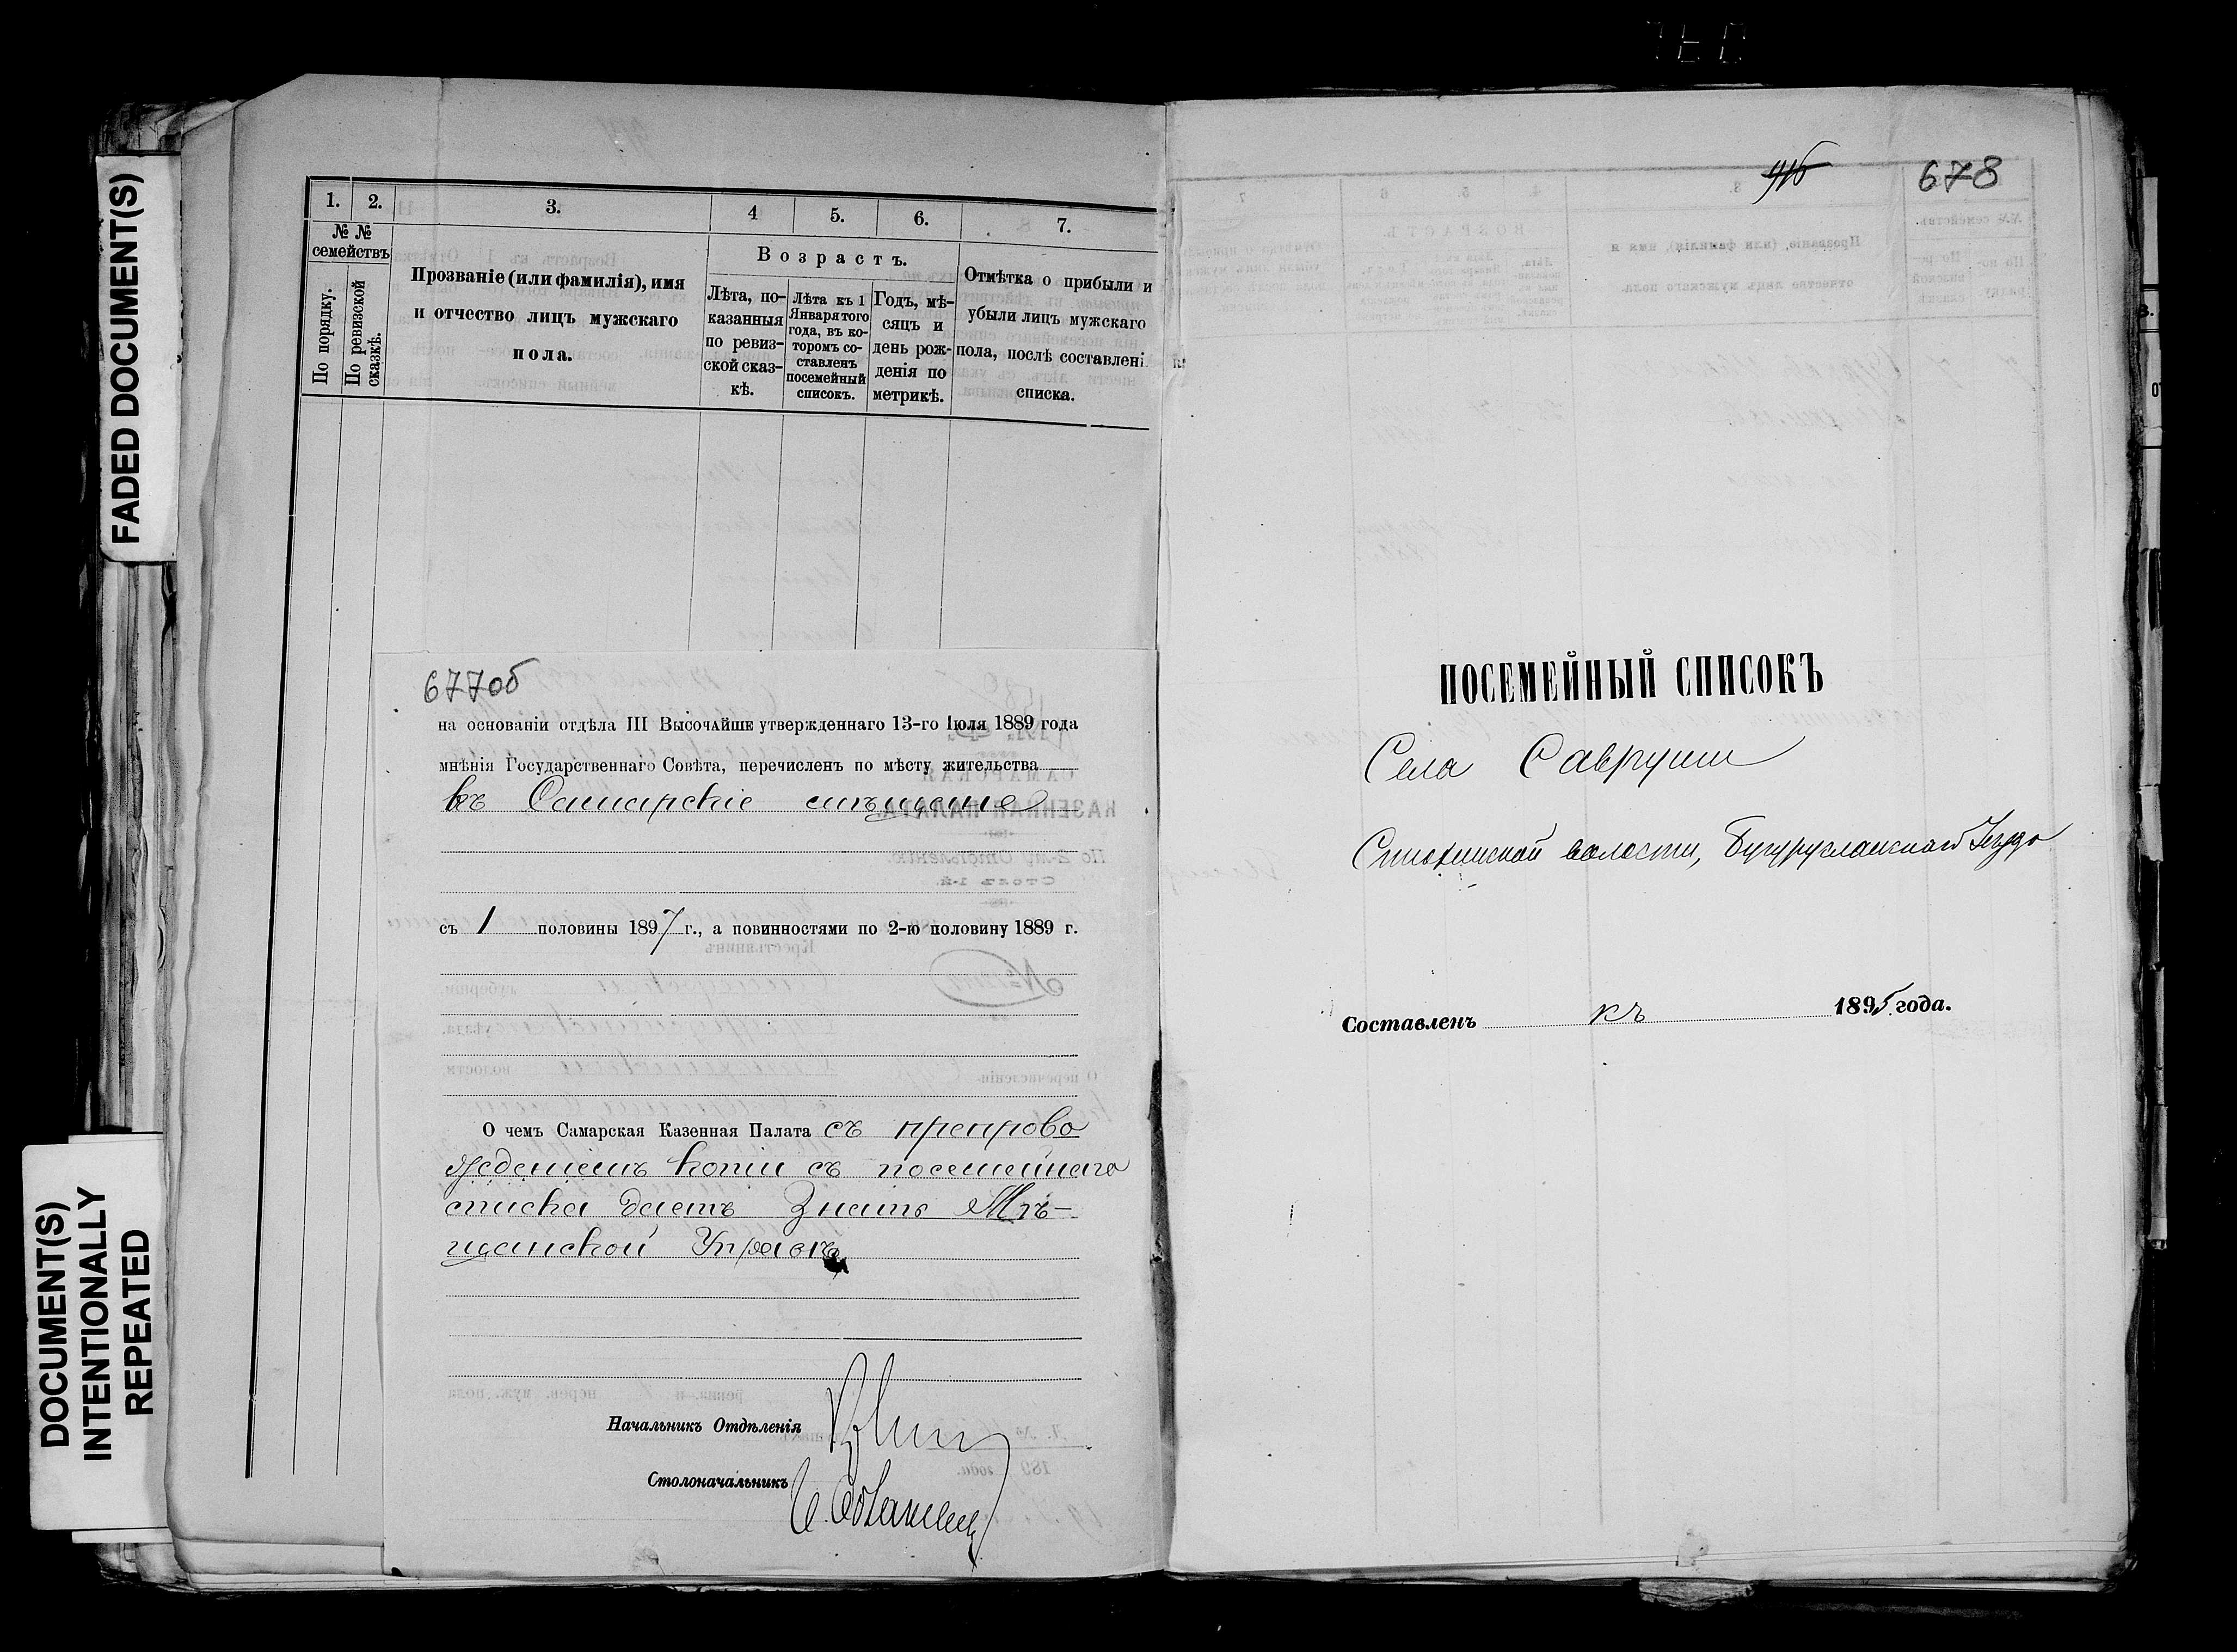 FADED DOCUMENT(S)
DOCUMENT(S)
INTENTIONALLY
REPEATED
1. 2. 3. 4 5. 6. 7.
№ №
семействъ
По порядку.
По ревизской
сказкѣ.
Прозваніе (или фамилія), имя
и отчество лицъ мужскаго
пола.
Возрастъ.
Лѣта, по-
казанныя
по ревиз-
ской сказ-
кѣ.
Лѣта къ 1
Января того
года, въ ко-
торомъ со-
ставленъ
посемейный
списокъ.
Годъ, мѣ-
сяцъ и
день рож-
денія по
метрикѣ.
Отмѣтка о прибыли и
убыли лицъ мужскаго
пола, послѣ составлені
списка.
677об
на основаніи отдѣла III Высочайше утвержденнаго 13-го Іюля 1889 года
мнѣнія Государственнаго Совѣта, перечисленъ по мѣсту жительства
въ Самарскіе мѣщане
съ 1 половины 1897 г., а повинностями по 2-ю половину 1889 г.
О чемъ Самарская Казенная Палата съ препрово
жденіемъ копіи съ посемейнаго
списка даетъ знать Мѣ-
щанской Управѣ
Начальникъ Отдѣленія
Столоначальникъ
678
ПОСЕМЕЙНЫЙ СПИСОКЪ
Села Савруши
волости, Бугурусланскаго Уѣзда
Составленъ къ 1895 года.